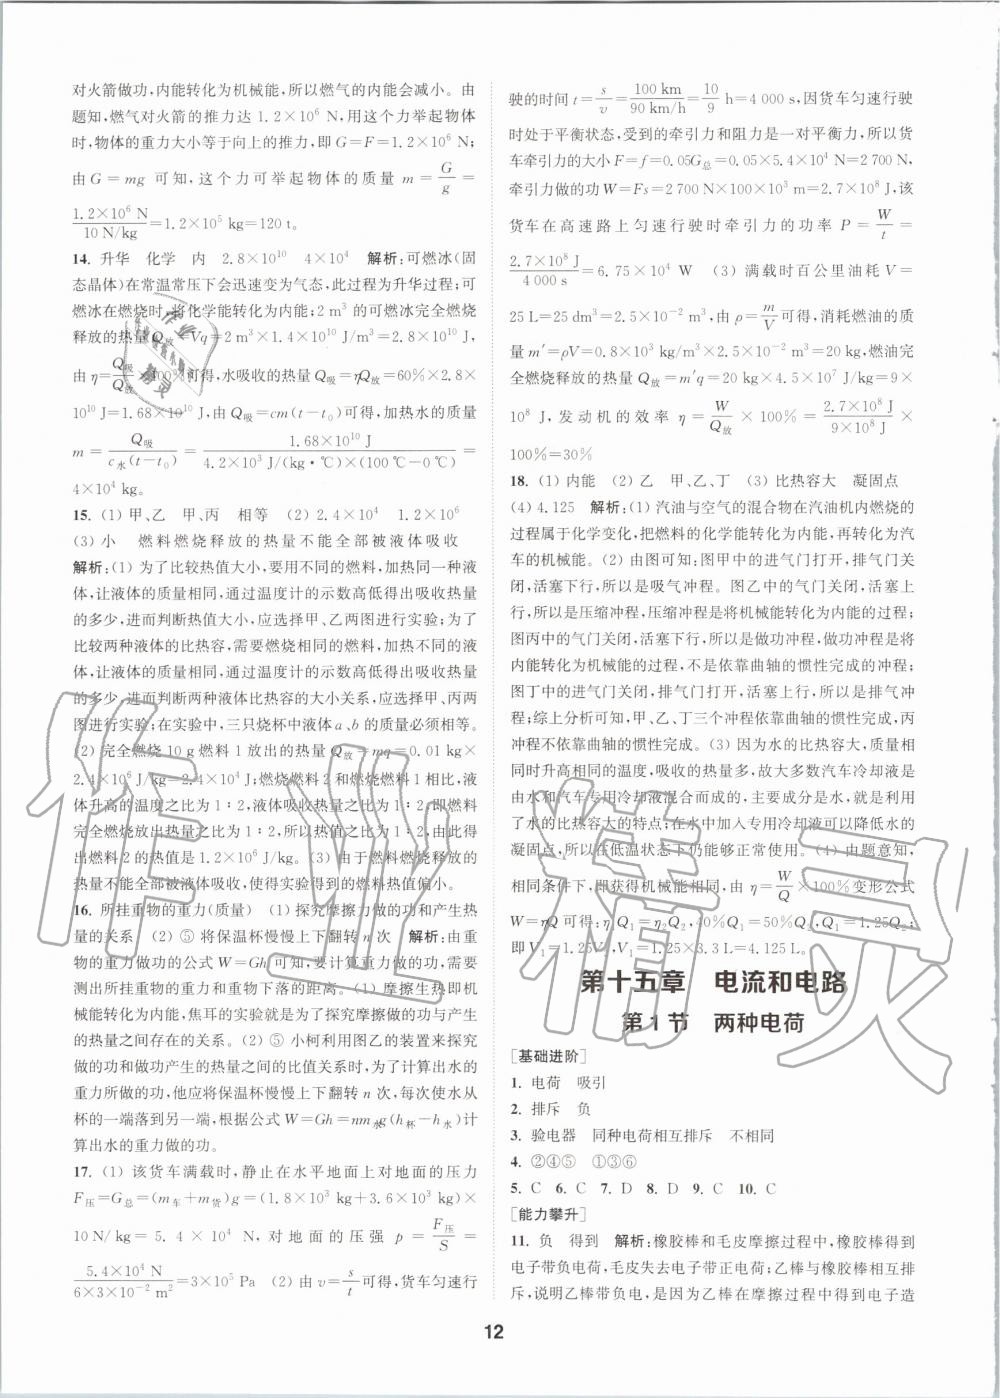 对火箭做功,内能转化为机械能,所以燃气的内能会减小。由
题知,燃气对火箭的推力达 1.2×10⁶ N,用这个力举起物体
时,物体的重力大小等于向上的推力,即 G=F=1.2×10⁶ N;
由 G=mg 可知,这个力可举起物体的质量 m=G/g=
1.2×10⁶ N/10 N/kg=1.2×10⁵ kg=120 t。
14. 升华 化学 内 2.8×10¹⁰ 4×10⁴ 解析:可燃冰(固
态晶体)在常温常压下会迅速变为气态,此过程为升华过程;可
燃冰在燃烧时,将化学能转化为内能;2 m³ 的可燃冰完全燃烧
释放的热量 Q放=Vq=2 m³×1.4×10¹⁰ J/m³=2.8×10¹⁰ J,
由 η=Q吸/Q放×100%可得,水吸收的热量 Q吸=ηQ放=60%×2.8×
10¹⁰ J=1.68×10¹⁰ J,由 Q吸=cm(t-t₀)可得,加热水的质量
m=Q吸/c水(t-t₀)=1.68×10¹⁰ J/4.2×10³ J/(kg·℃)×(100 ℃-0 ℃)=
4×10⁴ kg。
15. (1) 甲、乙 甲、丙 相等 (2) 2.4×10⁴ 1.2×10⁶
(3) 小 燃料燃烧释放的热量不能全部被液体吸收
解析:(1) 为了比较热值大小,要用不同的燃料,加热同一种液
体,让液体的质量相同,通过温度计的示数高低得出吸收热量
的多少,进而判断热值大小,应选择甲、乙两图进行实验;为了
比较两种液体的比热容,需要燃烧相同的燃料,加热不同的液
体,让液体的质量相同,通过温度计的示数高低得出吸收热量
的多少,进而判断两种液体比热容的大小关系,应选择甲、丙两
图进行实验;在实验中,三只烧杯中液体 a、b 的质量必须相等。
(2) 完全燃烧 10 g 燃料 1 放出的热量 Q放=mq=0.01 kg×
2.4×10⁶ J/kg=2.4×10⁴ J;燃烧燃料 2 和燃烧燃料 1 相比,液
体升高的温度之比为 1∶2,液体吸收热量之比为 1∶2,即燃料
完全燃烧放出热量之比为 1∶2,所以热值之比为 1∶2,由此得
出燃料 2 的热值是 1.2×10⁶ J/kg。(3) 由于燃料燃烧释放的热
量不能全部被液体吸收,使得实验得到的热值偏小。
16. 所挂重物的重力(质量) (1) 探究摩擦力做的功和产生热
量的关系 (2) ⑤ 将保温杯慢慢上下翻转 n 次 解析:由重
物的重力做功的公式 W=Gh 可知,要计算重力做的功,需要
测出所挂重物的重力和重物下落的距离。(1) 摩擦生热即机
械能转化为内能,焦耳的实验就是为了探究摩擦力做的功与产生
的热量之间存在的关系。(2) ⑤ 小柯利用图乙的装置来探究
做的功和做功产生的热量之间的比值关系时,为了计算出水的
重力所做的功,他应将保温杯慢慢上下翻转 n 次,每次使水从
杯的一端下落到另一端,根据公式 W=Gh=nm水g(h杯-h水)计
算出水的重力做的功。
17. (1) 该货车满载时,静止在水平地面上对地面的压力
F压=G总=(m车+m货)g=(1.8×10³ kg+3.6×10³ kg)×
10 N/kg=5.4×10⁴ N,对地面的压强 p=F压/S=
5.4×10⁴ N/6×3×10⁻² m²=3×10⁵ Pa (2) 由 v=s/t可得,货车匀速行
驶的时间 t=s/v=100 km/90 km/h=10/9 h=4 000 s,因货车匀速行驶
时处于平衡状态,受到的牵引力和阻力是一对平衡力,所以货
车牵引力的大小 F=f=0.05G总=0.05×5.4×10⁴ N=2 700 N,
牵引力做的功 W=Fs=2 700 N×100×10³ m=2.7×10⁸ J,该
货车在高速路上匀速行驶时牵引力的功率 P=W/t=
2.7×10⁸ J/4 000 s=6.75×10⁴ W (3) 满载时百公里油耗 V=
25 L=25 dm³=2.5×10⁻² m³,由 ρ=m/V可得,消耗燃油的质
量 m′=ρV=0.8×10³ kg/m³×2.5×10⁻² m³=20 kg,燃油完
全燃烧释放的热量 Q放=m′q=20 kg×4.5×10⁷ J/kg=9×
10⁸ J,发动机的效率 η=W/Q放×100%=2.7×10⁸ J/9×10⁸ J×
100%=30%
18. (1) 内能 (2) 乙 甲、乙、丁 (3) 比热容大 凝固点
(4) 4.125 解析:(1) 汽油与空气的混合物在汽油机内燃烧的
过程属于化学变化,把燃料的化学能转化为内能,再转化为汽
车的机械能。(2) 由图可知:图甲中的进气门打开,排气门关
闭,活塞下行,所以是吸气冲程。图乙中的气门关闭,活塞上
行,所以是压缩冲程,压缩冲程是将机械能转化为内能的过程;
图丙中的气门关闭,活塞下行,所以是做功冲程,做功冲程是将
内能转化为机械能的过程,不是依靠曲轴的惯性完成的冲程;
图丁中的进气门关闭,排气门打开,活塞上行,所以是排气冲
程;综上分析可知,甲、乙、丁三个冲程依靠曲轴的惯性完成,丙
不依靠曲轴的惯性完成。(3) 因为水的比热容大,质量相
同时升高相同的温度,吸收的热量多,故大多数汽车冷却液是
由水和汽车专用冷却液混合而成的,主要成分是水,就是利用
了水的比热容大的特点;在水中加入专用冷却液可以降低水的
凝固点,所以在低温状态下仍能够正常使用。(4) 由题意知,
相同条件下,即获得机械能相同,由 η=W/Q×100%变形公式
W=ηQ 可得:η₁Q₁=η₂Q₂,40%Q₁=50%Q₂,Q₁=1.25Q₂;
即 V₁=1.25V₂,V₁=1.25×3.3 L=4.125 L。
第十五章 电流和电路
第1节 两种电荷
[基础进阶]
1. 电荷 吸引
2. 排斥 负
3. 验电器 同种电荷相互排斥 不相同
4. ②④⑤ ①③⑥
5. C 6. C 7. D 8. D 9. C 10. C
[能力攀升]
11. 负 得到 解析:橡胶棒和毛皮摩擦过程中,橡胶棒得到
电子带负电荷,毛皮失去电子带正电荷;乙棒与橡胶棒相互排
斥,说明乙棒带负电,是因为乙棒在摩擦过程中得到电子造
12
作业精灵